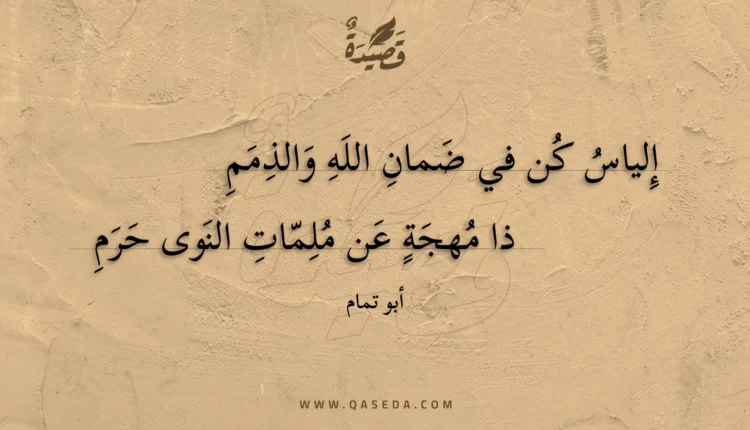 قَصِيدَةٌ
إِلياسُ كُن في ضَمانِ اللَهِ وَالذِمَمِ
ذا مُهجَةٍ عَن مُلِمّاتِ النَوى حَرَمِ
أبو تمام
WWW.QASEDA.COM